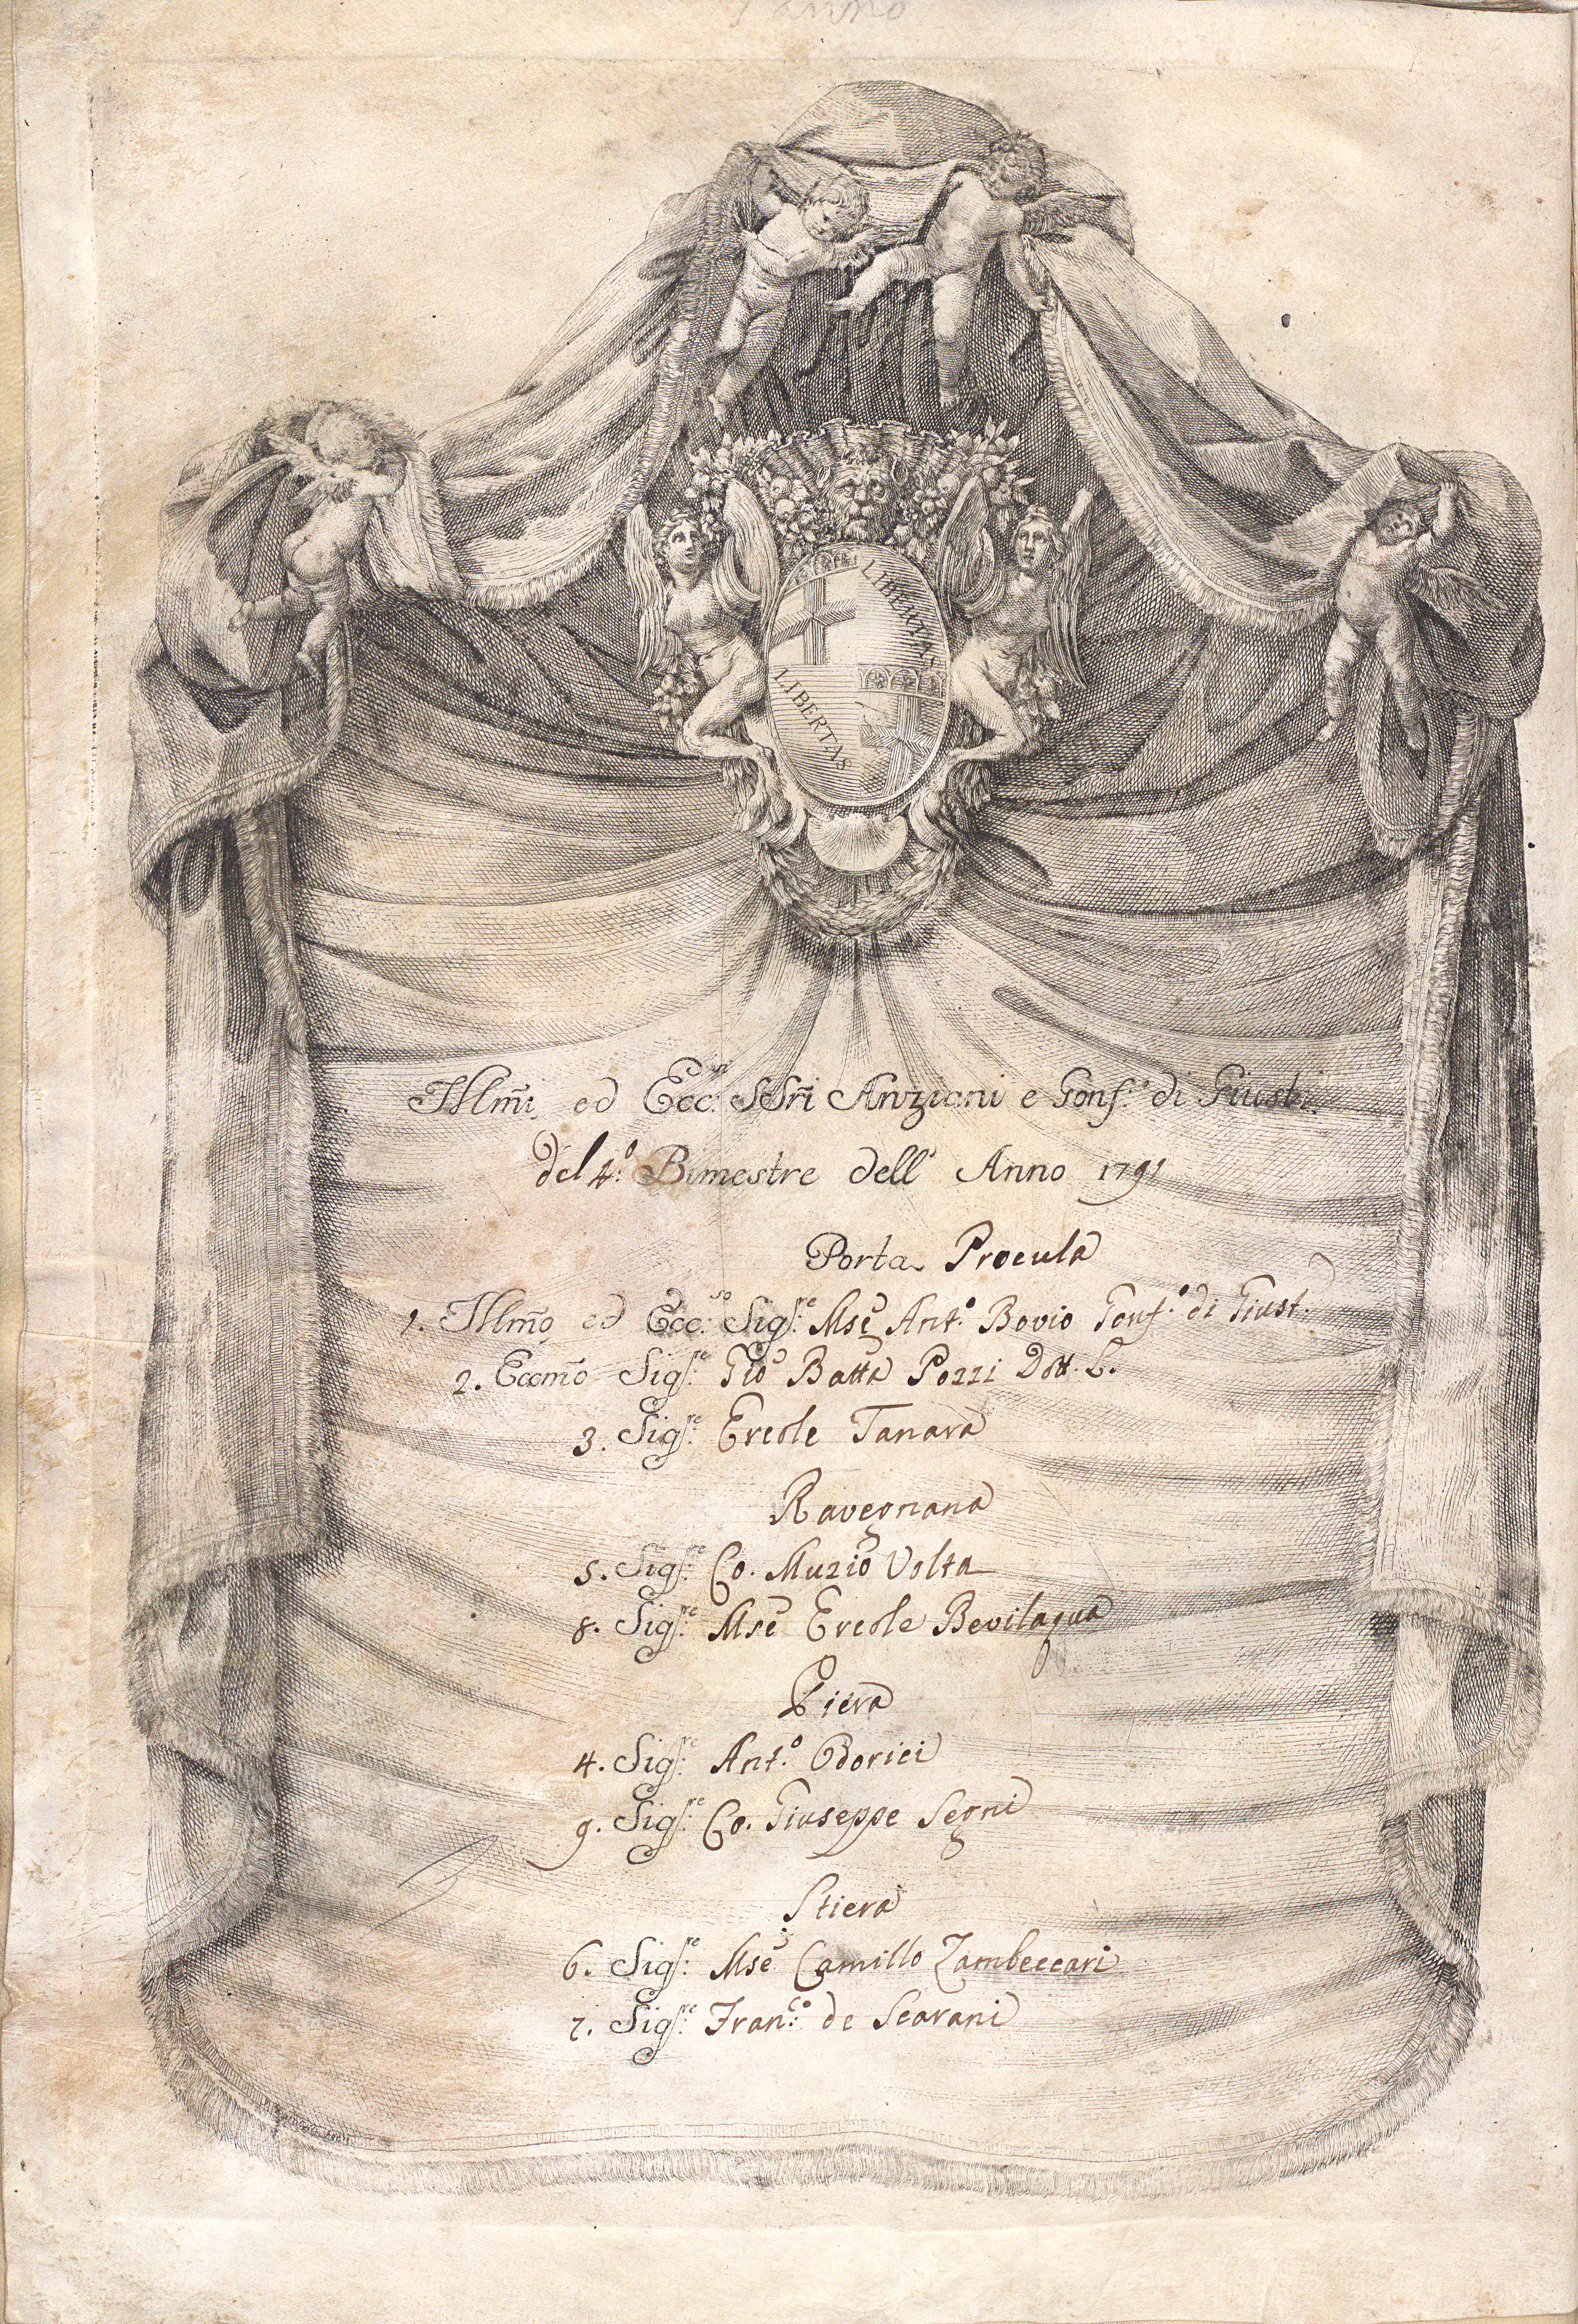 anno
LIBERTAS
LIBERTAS
Illm̃i ed Ecc.si SSri Anziani e Gonf.ri di Giusti.
del 4.o Bimestre dell' Anno 1791
Porta Procula
1. Illm̃o ed Ecc.so Sig.re Mse Ant.o Bovio Gonf.o di Giust.
2. Eccmo Sig.re Gio Batta Pozzi Dott. L.
3. Sig.re Ercole Tanara
Ravegnana
5. Sig.re Co. Muzio Volta
8. Sig.re Mse Ercole Bevilaqua
Piera
4. Sig.re Ant.o Odorici
9. Sig.re Co. Giuseppe Segni
Stiera
6. Sig.re Mse Camillo Zambeccari
7. Sig.re Fran.co de Scarani